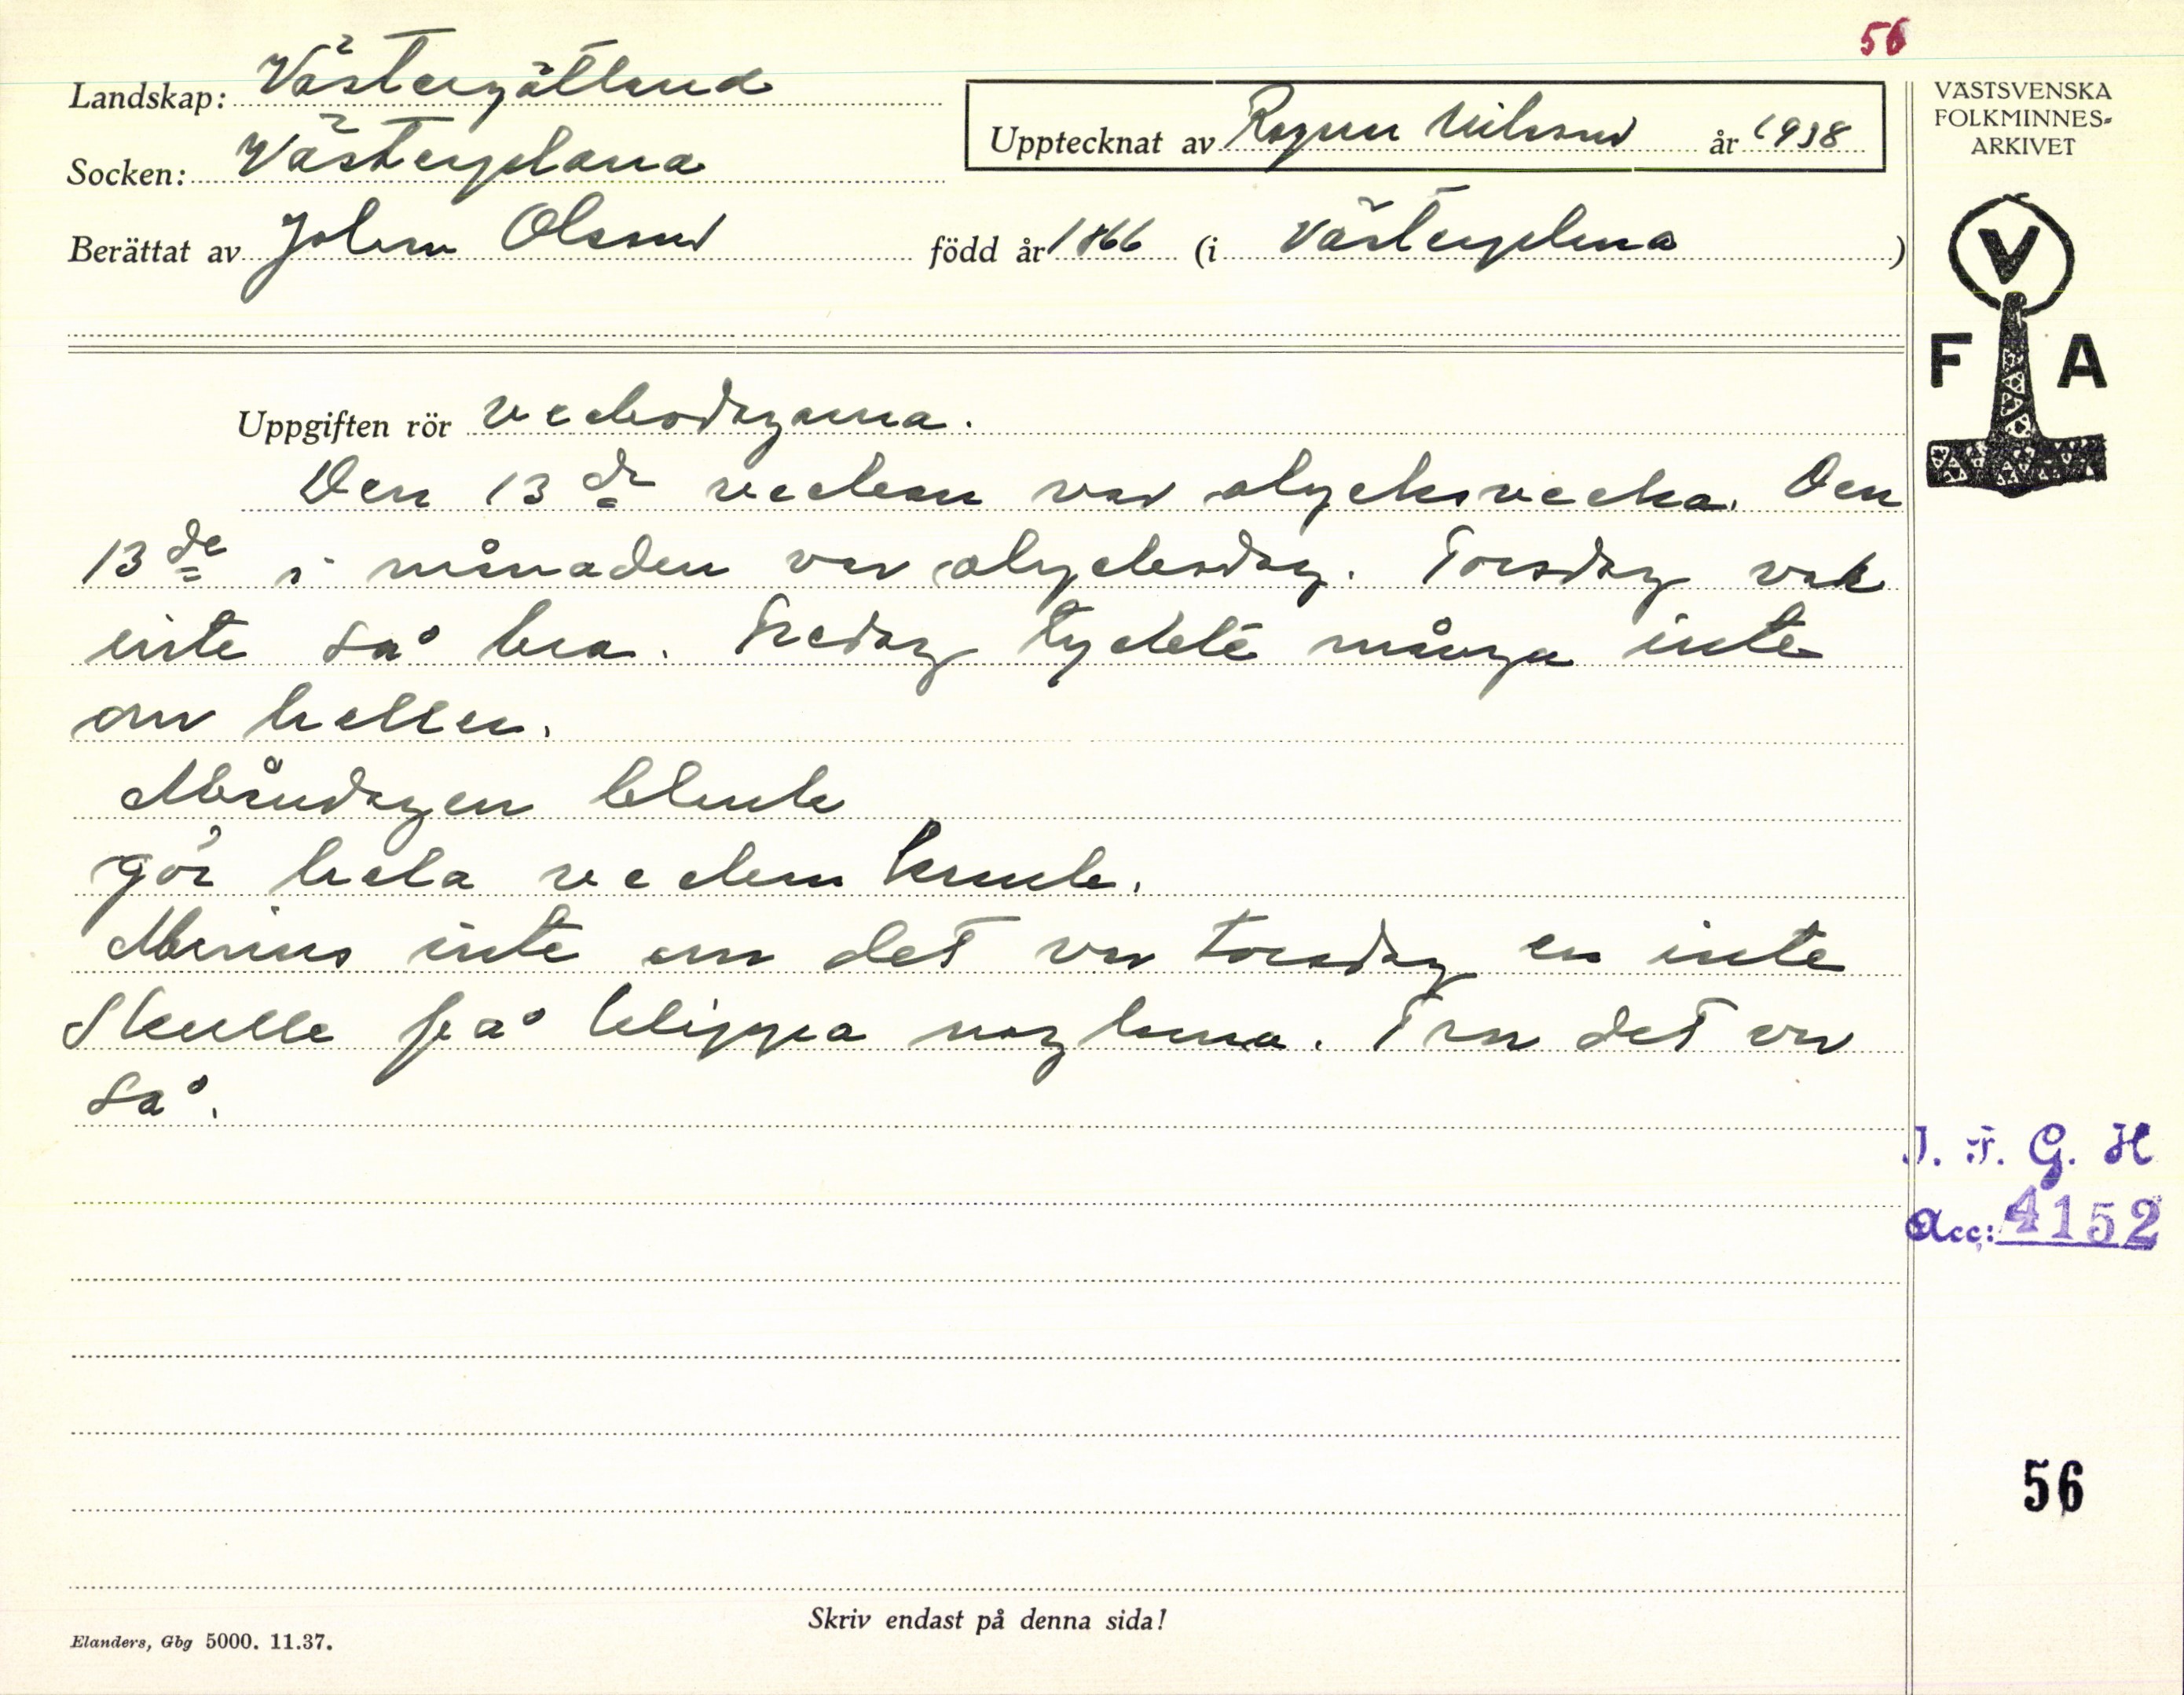 56
Landskap: Västergötland
Socken: Västerplana
Upptecknat av Ragnar Nilsson år 1938
Berättat av Johan Olsson född år 1866 (i Västerplana)
VÄSTSVENSKA
FOLKMINNES-
ARKIVET
V
F A
Uppgiften rör veckodagarna.
Den 13de veckan var olycksvecka. Den
13de i månaden var olycksdag. Torsdag var
inte så bra. Fredag tyckte många inte
om heller.
Måndagen blank
gör hela veckan krank.
Minns inte om det var torsdag en inte
skulle få klippa naglarna. Tror det var
så.
I. F. G. H
Acc: 4152
56
Skriv endast på denna sida!
Elanders, Gbg 5000. 11.37.